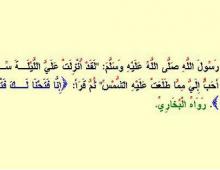 رَسُولَ اللَّهِ صَلَّى اللَّهُ عَلَيْهِ وَسَلَّمَ: "لَقَدْ أُنْزِلَتْ عَلَيَّ اللَّيْلَةَ سُـ
أَحَبُّ إِلَيَّ مِمَّا طَلَعَتْ عَلَيْهِ الشَّمْسُ" ثُمَّ قَرَأَ: ﴿إِنَّا فَتَحْنَا لَـكَ فَتْ
﴾. رَوَاهُ الْبُخَارِيُّ.